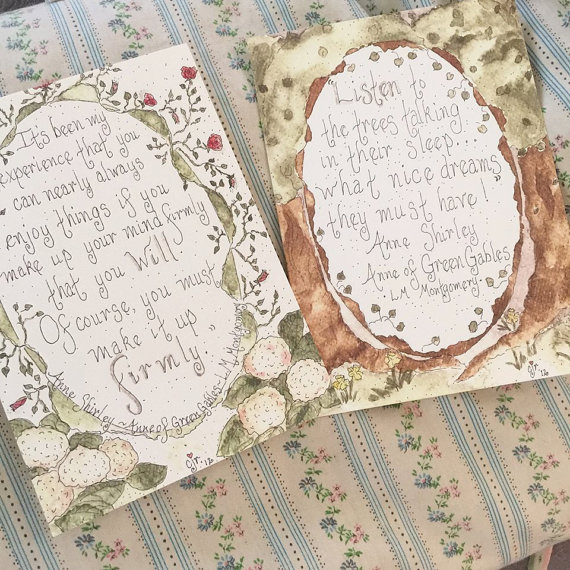 It's been my
experience that you
can nearly always
enjoy things if you
make up your mind firmly
that you will.
Of course, you must
make it up
firmly."
Anne Shirley ~ Anne of Green Gables - L.M. Montgomery
'16
"Listen to
the trees talking
in their sleep...
what nice dreams
they must have!"
Anne Shirley
Anne of Green Gables
- L.M. Montgomery
'16